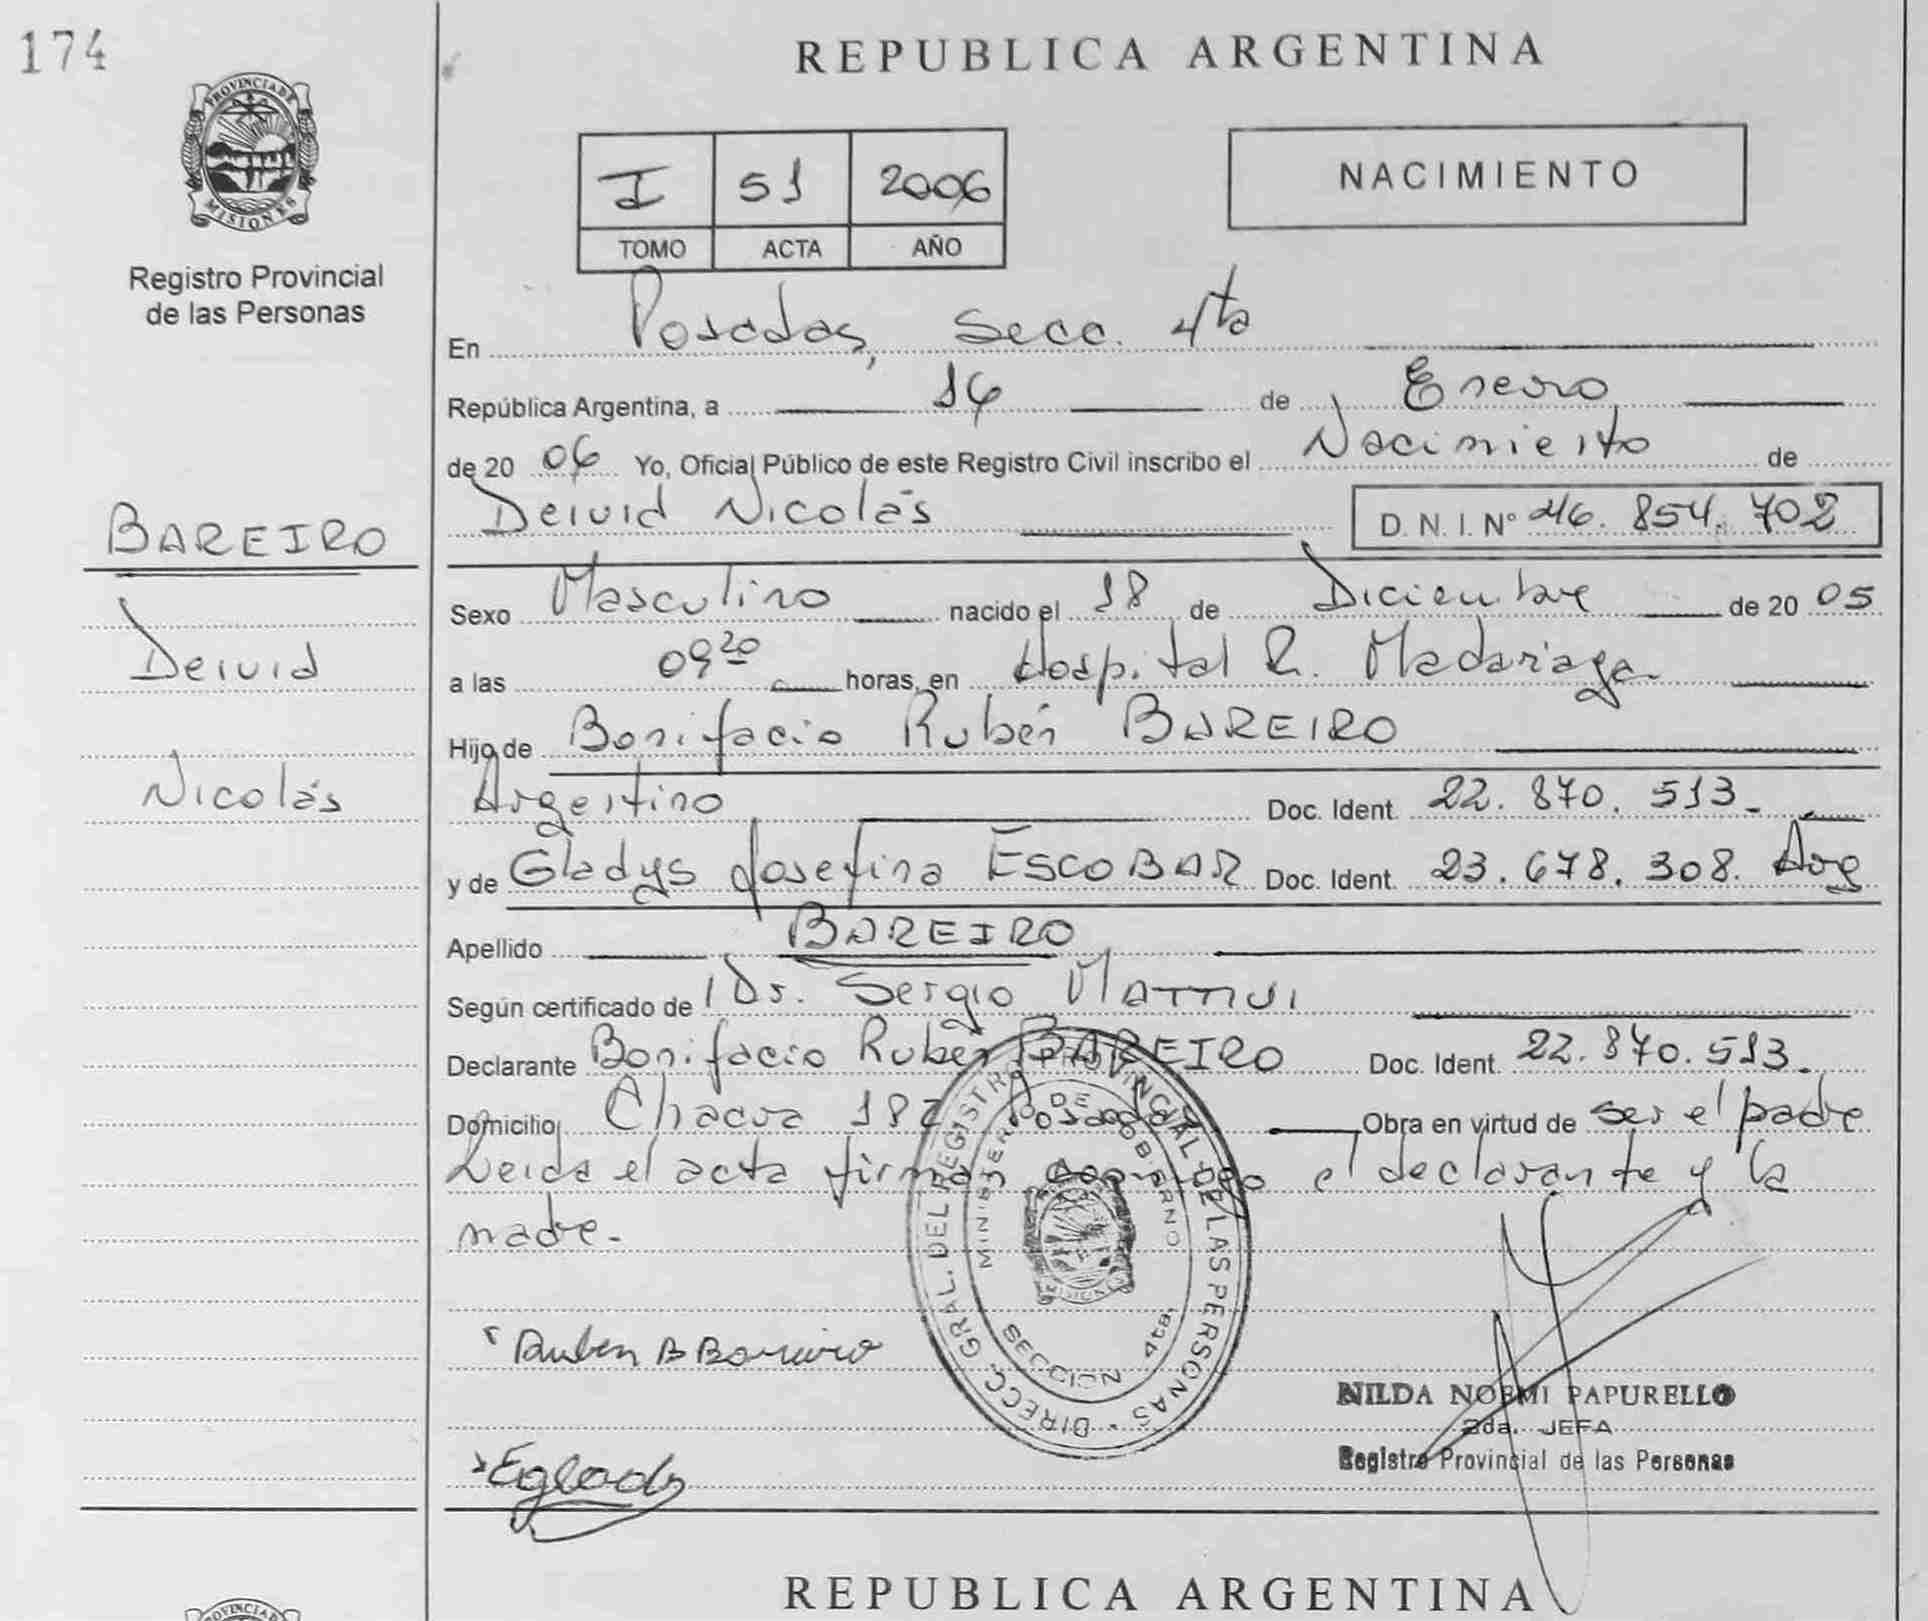 174
REPUBLICA ARGENTINA
PROVINCIA DE
MISIONES
Registro Provincial
de las Personas
I 51 2006
TOMO ACTA AÑO
NACIMIENTO
En Posadas, Secc. 4ta
República Argentina, a 16 de Enero
de 20 06 Yo, Oficial Público de este Registro Civil inscribo el Nacimiento de
Deivid Nicolás D. N. I. Nº 46. 854. 702
BAREIRO
Deivid
Nicolás
Sexo Masculino nacido el 18 de Diciembre de 20 05
a las 09 20 horas, en Hospital R. Madariaga
Hijo de Bonifacio Rubén BAREIRO
Argentino Doc. Ident. 22. 870. 513.
y de Gladys Josefina ESCOBAR Doc. Ident. 23. 678. 308. Arg
Apellido BAREIRO
Según certificado de Dr. Sergio
Declarante Bonifacio Rubén BAREIRO Doc. Ident. 22. 870. 513.
Domicilio Chacra 182 Posadas Obra en virtud de ser el padre
Leida el acta firman conmigo el declarante y la
madre.-
DIRECC. GRAL. DEL REGISTRO PROVINCIAL DE LAS PERSONAS
MINISTERIO DE GOBIERNO
SECCION 4ta.
Ruben B Bareiro
NILDA NOEMI PAPURELLO
2da. JEFA
Registro Provincial de las Personas
REPUBLICA ARGENTINA
PROVINCIA DE